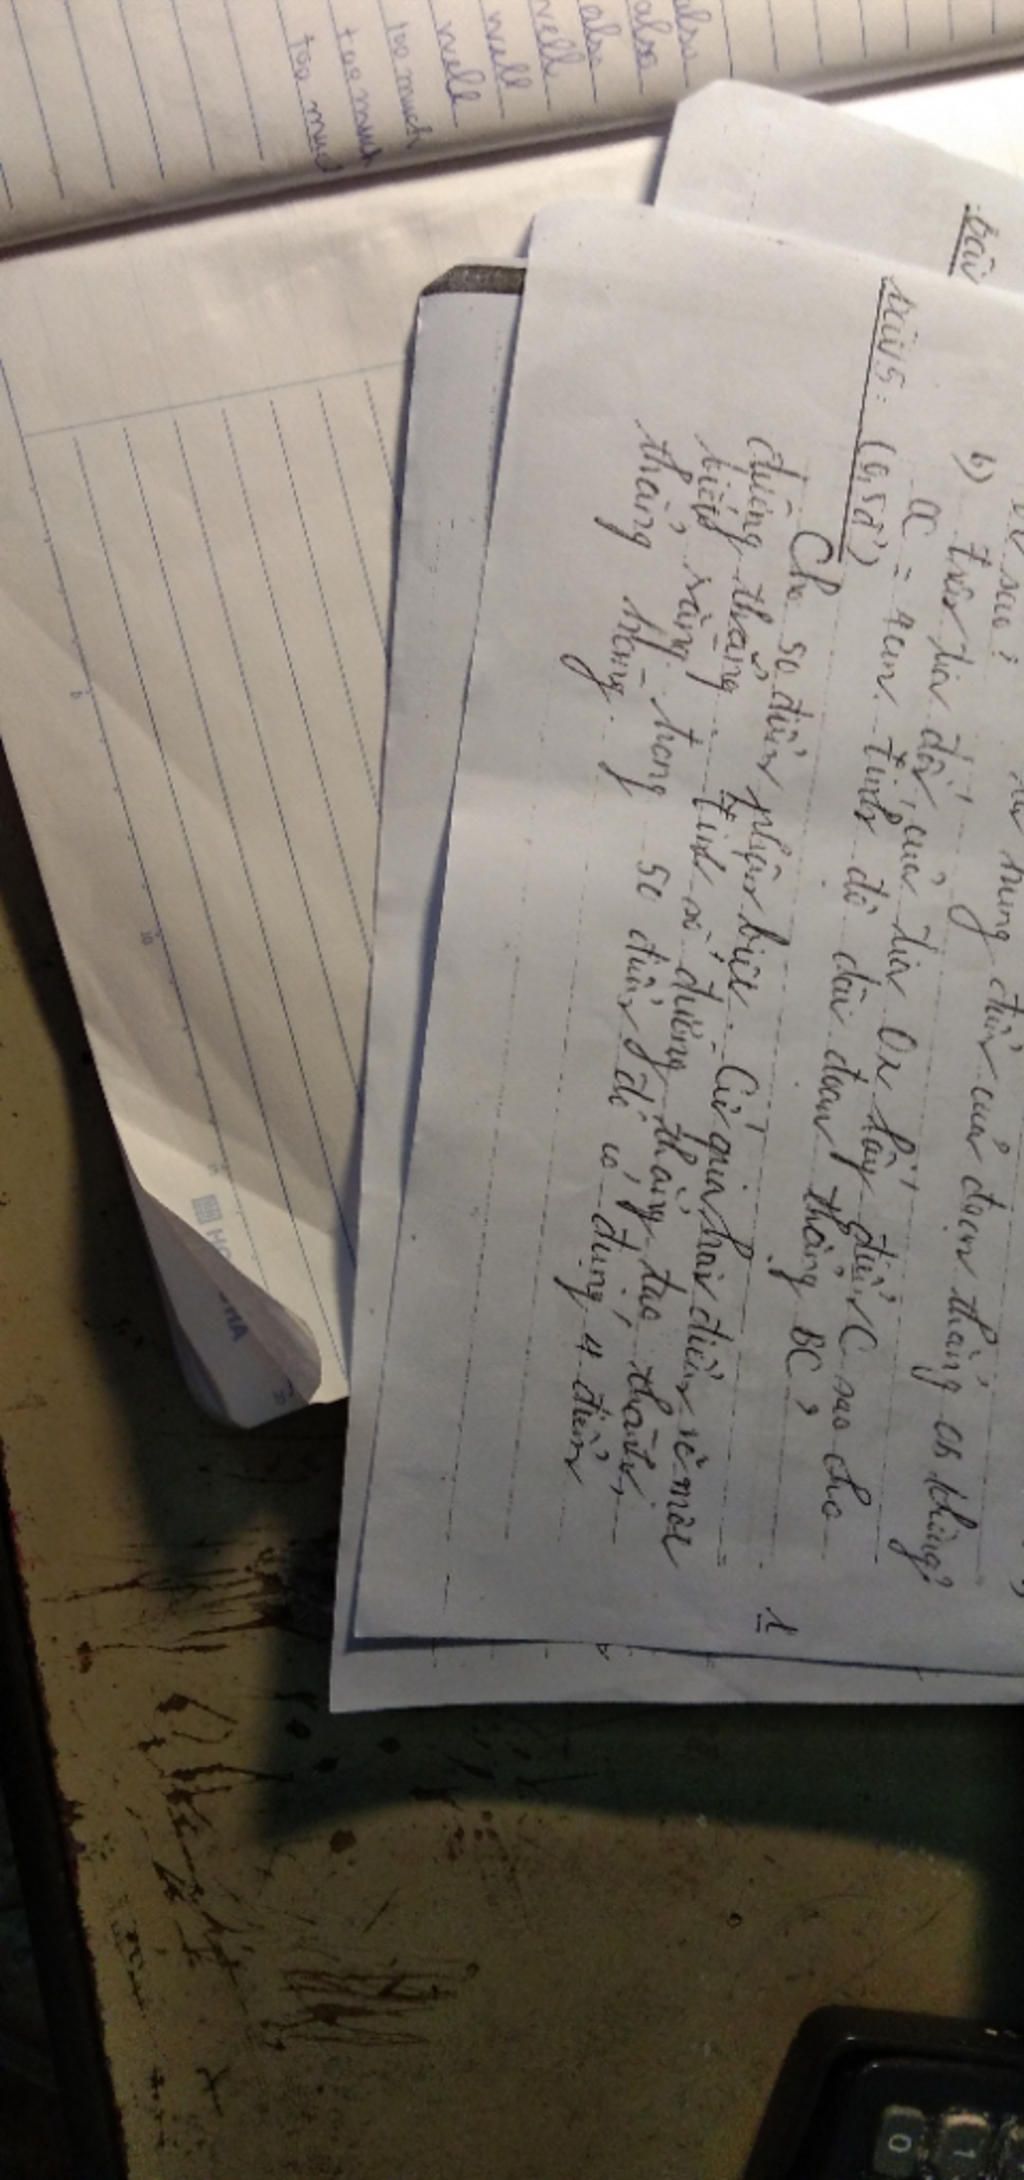 also
also
also
well
well
well
too much
too much
too muc
bài
sao?
trung điểm của đoạn thẳng OB không?
b) trên tia đối của tia Ox lấy điểm C sao cho
OC = 4cm. tính độ dài đoạn thẳng BC?
bài 5: (0,5đ)
Cho 50 điểm phân biệt. Cứ qua hai điểm vẽ một
đường thẳng. tính số đường thẳng tạo thành,
biết rằng trong 50 điểm đó có đúng 4 điểm
thẳng hàng.
1
0
1